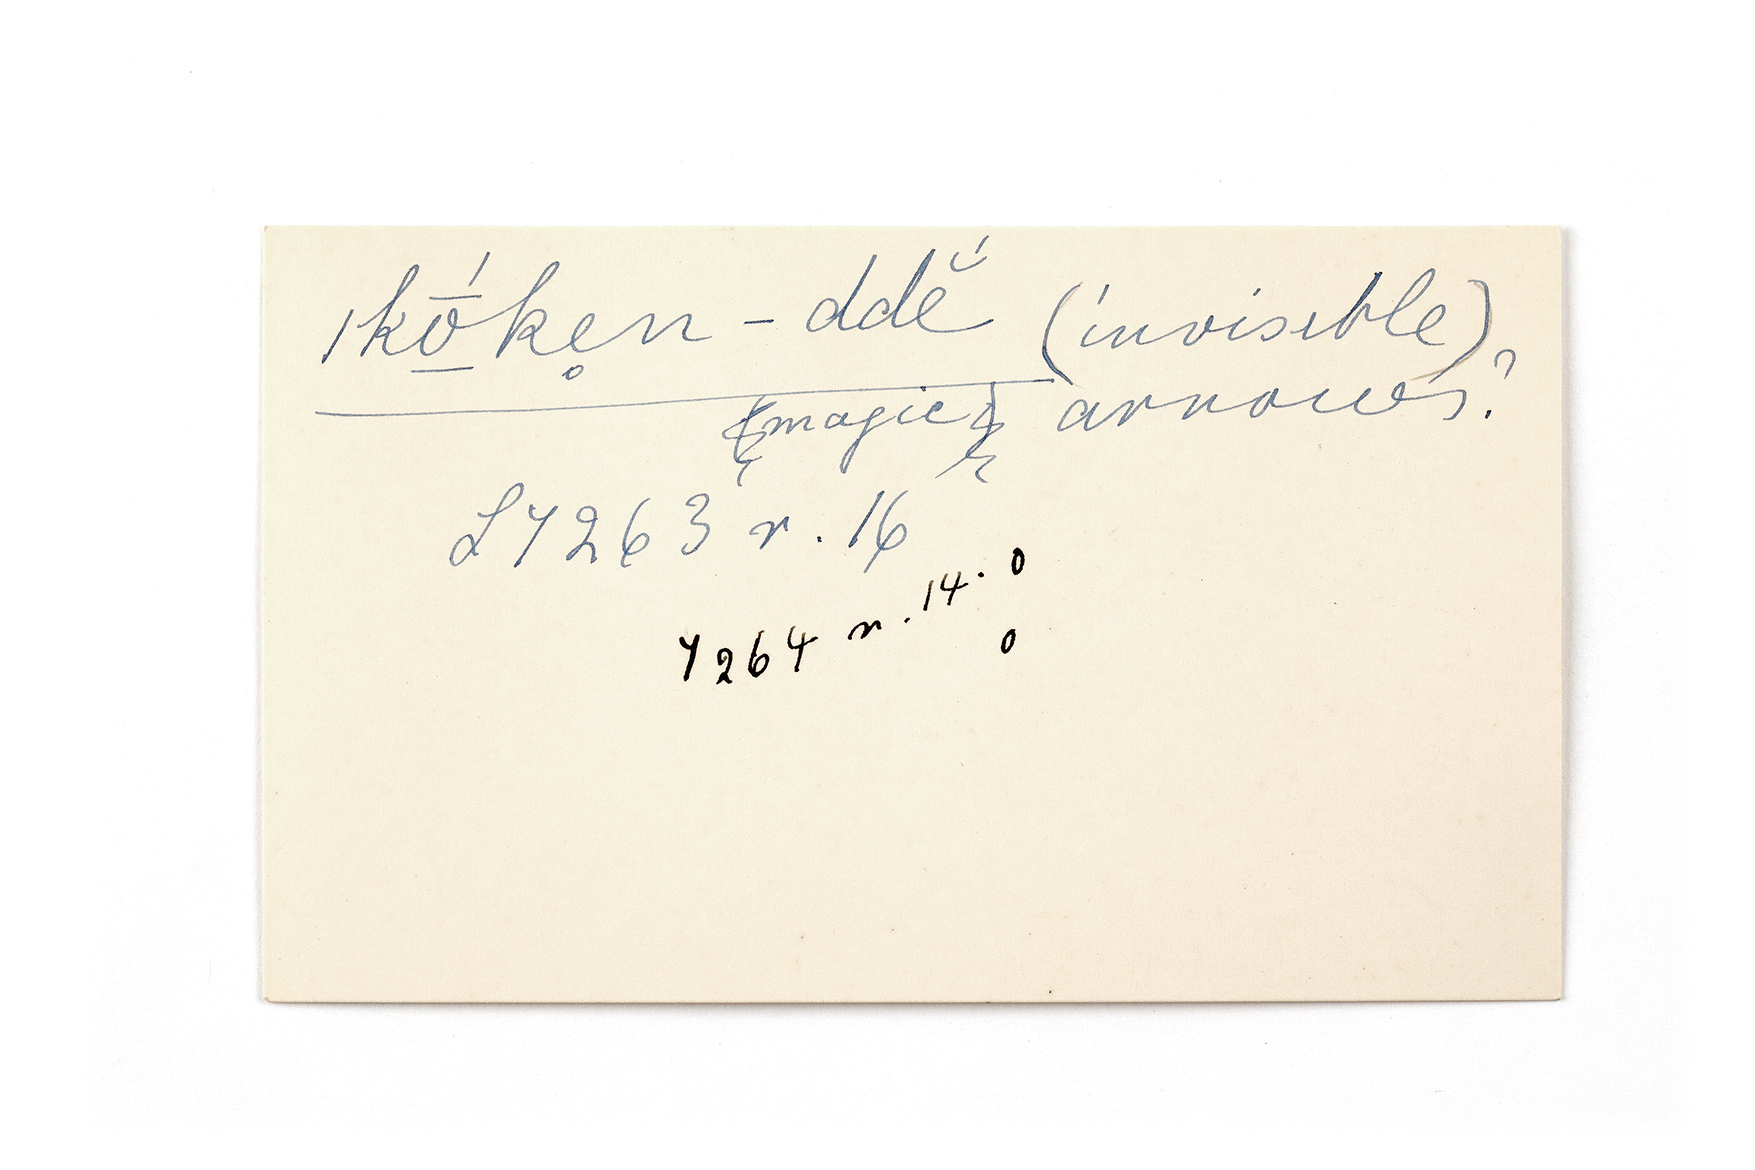 ǀkṓ̠ken̥-ddĕ́ (invisible)
{magic} arrows?
L Y 263 r. 16
Y 264 r. 14. 0
0